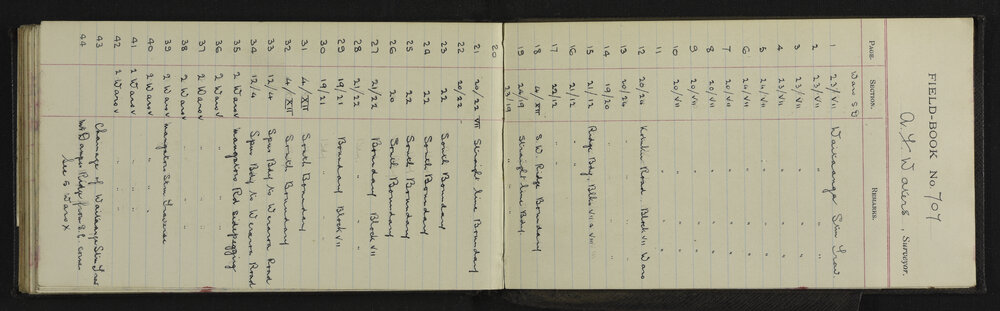 FIELD-BOOK No 707
A. H. Waters, Surveyor.
PAGE. SECTION. REMARKS.
Waro S D
1 23/VII Waikaanga Stm Trav
2 23/VII " "
3 23/VII " "
4 23/VII " "
5 24/VII " "
6 24/VII " "
7 20/VII " "
8 20/VII " "
9 20/VII " "
10 20/VII " "
11 " "
12 20/24 Road Block VII Waro
13 20/24 " "
14 19/20 " "
15 21/12 Ridge Bdy. Blks VII & VIII
16 21/12 " "
17 22/12 " "
18 4/XII S.W. Ridge Boundary
19 24/19 Straight line Bdy.
23/19 " "
20
21 20/22 VII Straight line Boundary
22 20/22
23 22 South Boundary
24 22 South Boundary
25 22 South Boundary
26 20 South Boundary
27 21/22 Boundary Block VII
28 21/22
29 19/21 Boundary Block VII
30 19/21
31 4/XII South Boundary
32 4/XII South Boundary
33 12/4 Spur Bdy to Weraroa Road
34 12/4 Spur Bdy to Weraroa Road
35 2 Waro V Mangatoro Rd Sidepegging
36 2 Waro V
37 2 Waro V "
38 2 Waro V "
39 2 Waro V Mangatoro Stm Traverse
40 2 Waro V " "
41 2 Waro V " "
42 2 Waro V " "
43 Change of Waikaanga Stm Trav
44 Mt Danger Ridge from S.E. corner
Sec 5 Waro X